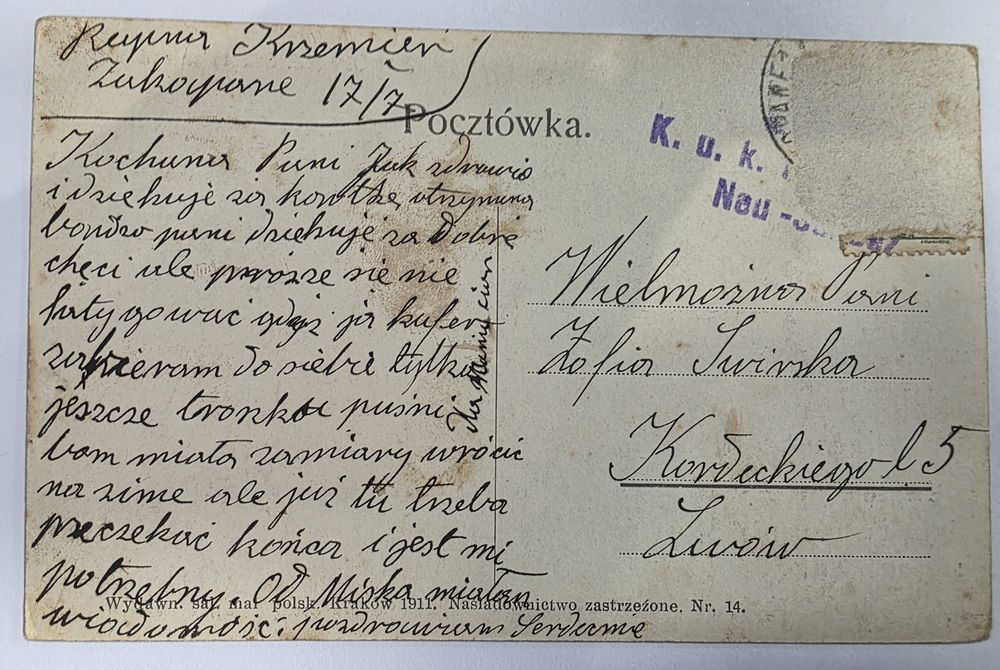 Regina Krzemień
Zakopane 17/7
Pocztówka.
K. u. k.
Neu-
Kochana Pani Jak zdrowie
i dziękuje za kartkę otrzymaną
bardzo pani dziękuje za dobre
chęci ale prosze się nie
fatygować gdyż ja kufer
zabieram do siebie tylko
jeszcze troszku puźni
bom miała zamiary wrócić
na zime ale już tu trzeba
przeczekać końca i jest mi
potrzebny. Od Miśka miałam
wiadomość. pozdrawiam Serdecznie
Wielmożna Pani
Zofia Swirska
Kordeckiego l 5
Lwów
Wydawn. sal. mal. polsk. Kraków 1911. Naśladownictwo zastrzeżone. Nr. 14.